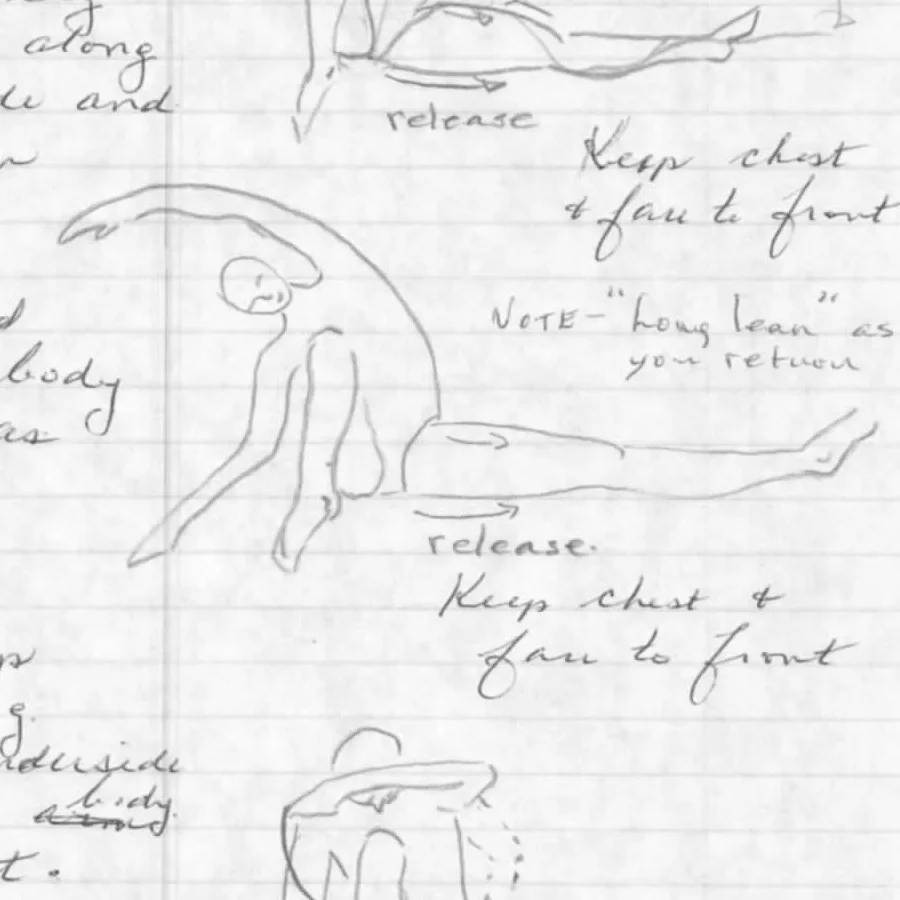 along
and
release
Keep chest
& face to front
NOTE - "Long lean" as
you return
body
as
release.
Keep chest &
face to front
underside
body
t.